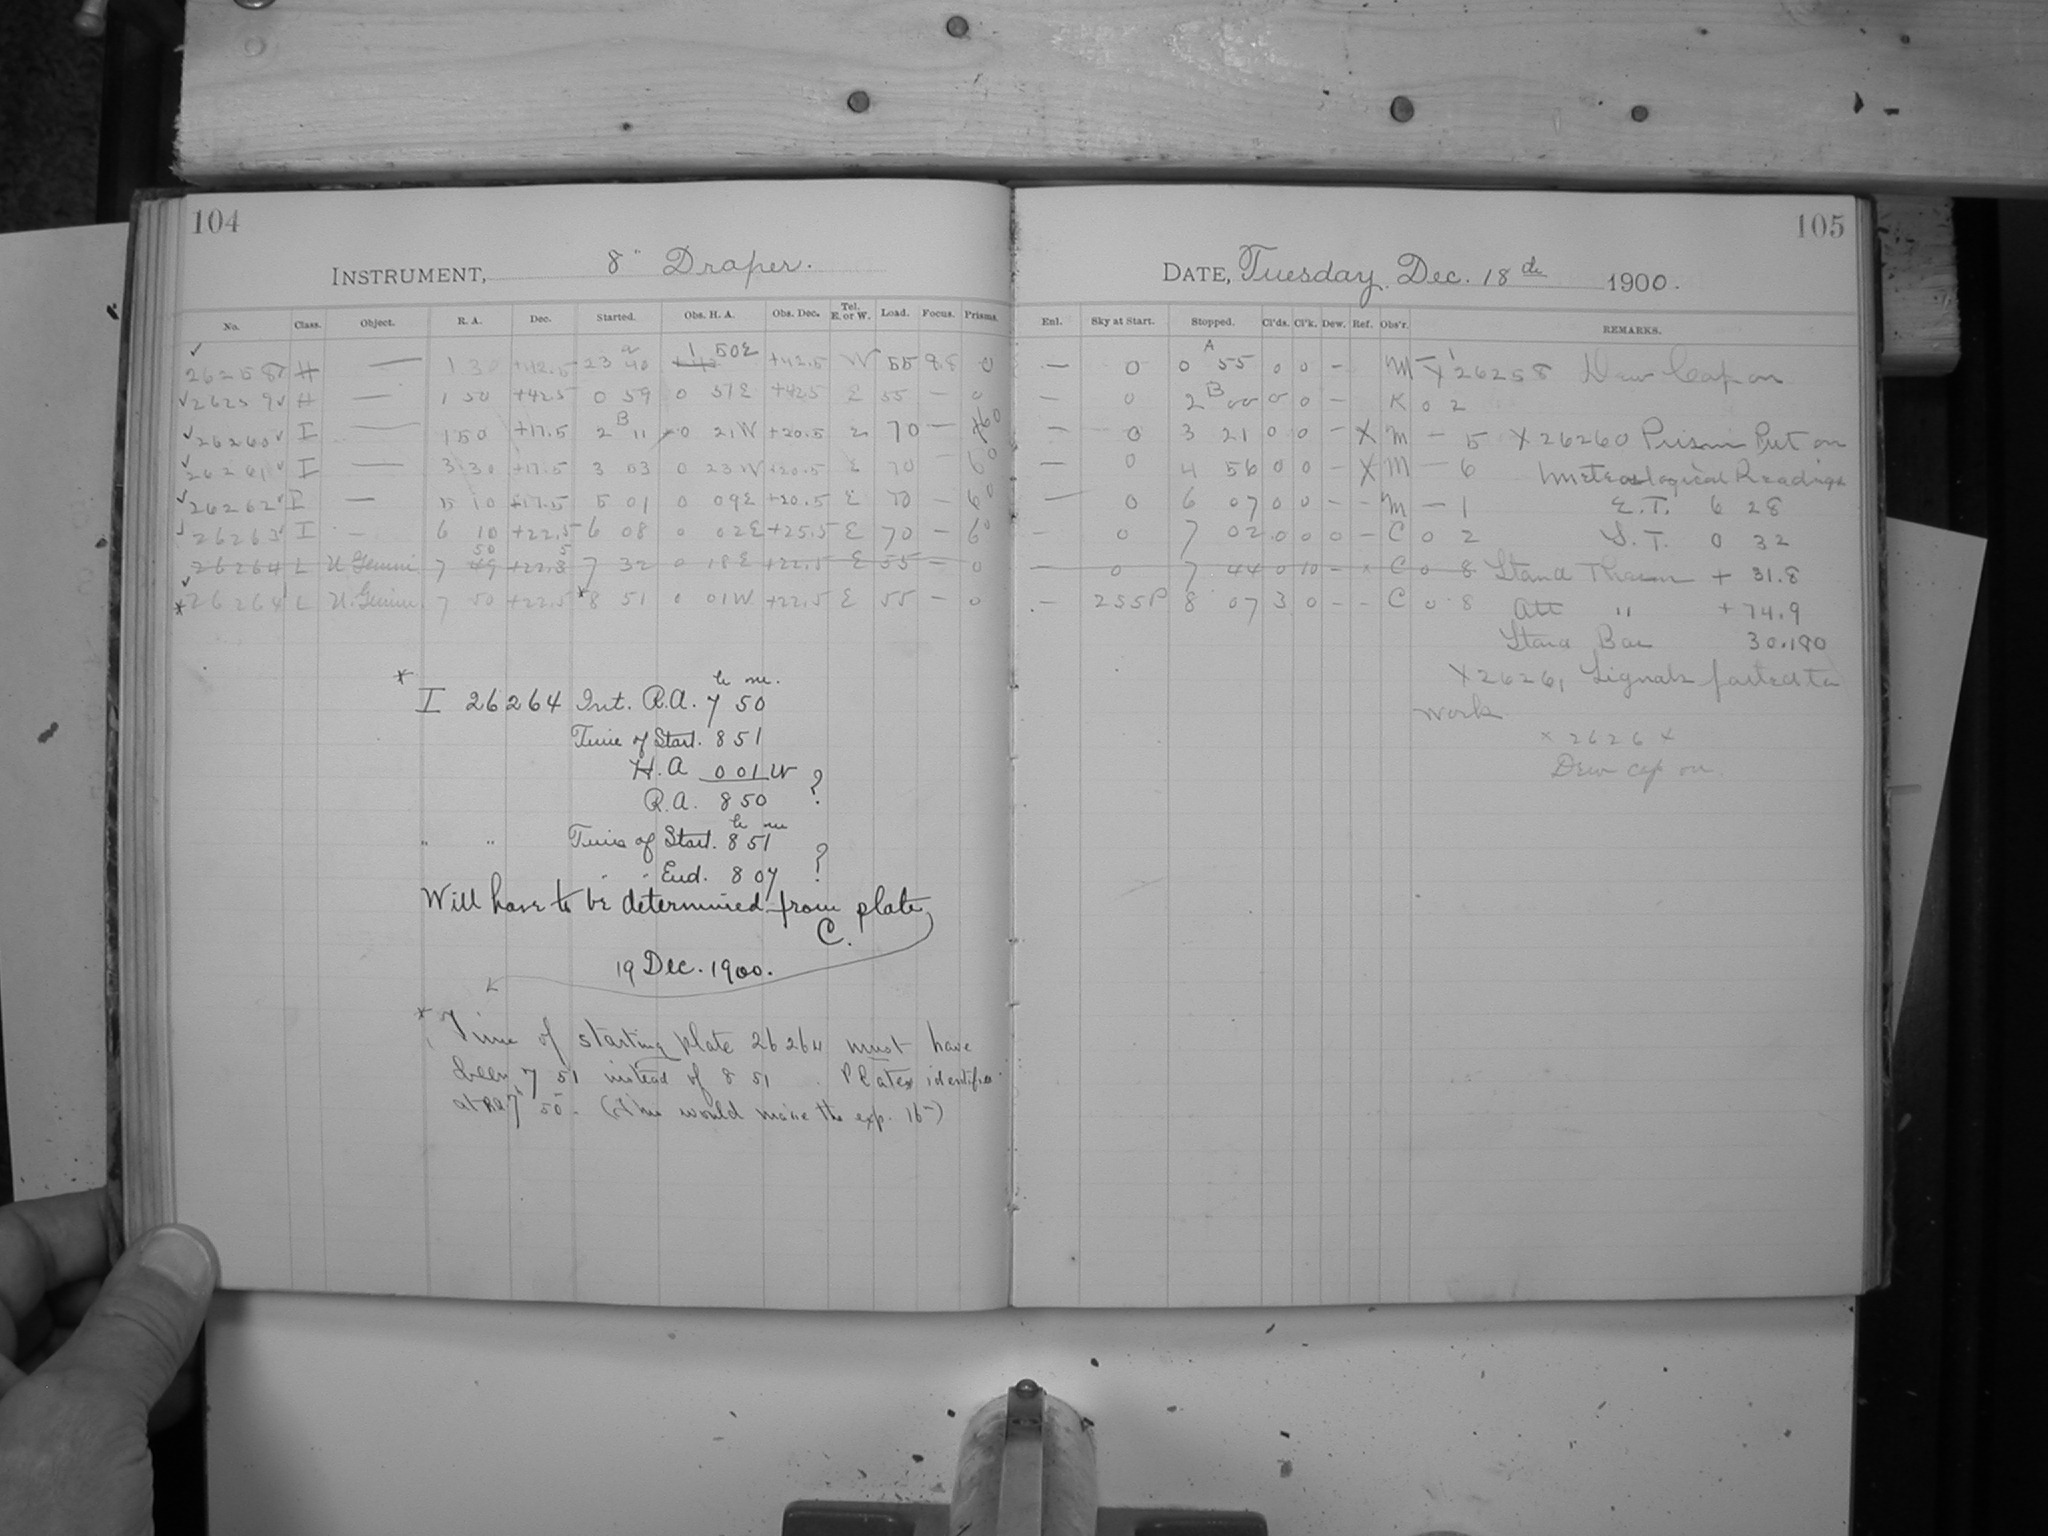 104
INSTRUMENT, 8" Draper.
No. Class. Object. R. A. Dec. Started. Obs. H. A. Obs. Dec. Tel. E. or W. Load. Focus. Prisms.
26258 H — 1 30 +42.5 23 40 1 50 E +42.5 W 55 9.8 0
26259 H — 1 50 +42.5 0 59 0 51 E +42.5 E 55 — 0
26260 I — 1 50 +17.5 2 11 0 21 W +20.5 E 70 — 60
26261 I — 3 30 +17.5 3 03 0 23 W +20.5 E 70 — 60
26262 I — 5 10 +17.5 5 01 0 09 E +20.5 E 70 — 60
26263 I — 6 10 +22.5 6 08 0 02 E +25.5 E 70 — 60
26264 L U Gemini 7 50 +22.5 7 32 0 18 E +22.5 E 55 — 0
* 26264 L U. Gemini 7 50 +22.5 * 8 51 0 01 W +22.5 E 55 — 0
* I 26264 Int. R.A. 7 h 50 m.
Time of Start. 8 51
H.A 0 01 W
R.A. 8 50 ?
" " Time of Start. 8 h 51 m
" " End. 8 07 ?
Will have to be determined from plate
C.
19 Dec. 1900.
* Time of starting plate 26264 must have
been 7 51 instead of 8 51. Plates identified
at RA 7h 50. (This would make the exp. 16m)
105
DATE, Tuesday, Dec. 18th 1900.
Enl. Sky at Start. Stopped. Cl'ds. Cl'k. Dew. Ref. Obs'r. REMARKS.
— 0 0 A 55 0 0 — M — 1 X 26258 Dew Cap on
— 0 2 B 00 0 0 — K 0 2
— 0 3 21 0 0 — X M — 5 X 26260 Prism Put on
— 0 4 56 0 0 — X M — 6 Meteorlogical Readings
— 0 6 07 0 0 - - M — 1 E.T. 6 28
— 0 7 02 0 0 0 — C 0 2 S.T. 0 32
— 0 7 44 0 10 - x C 0 8 Stand Therm + 31.8
— 255P 8 07 3 0 - - C 0 8 Att " + 74.9
Stand Bar 30.180
X 26261 Signals failed to
work
x 2626x
Dew cap on.